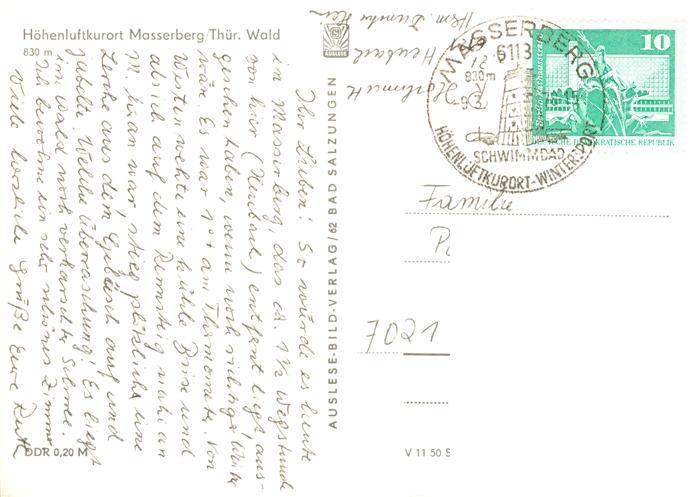 Höhenluftkurort Masserberg/Thür. Wald
830 m
Ihr Lieben! So würde es heute
in Masserberg, das ca. 1½ Wegstunde
von hier (Heubach) entfernt liegt, aus-
gesehen haben, wenn noch richtiger Winter
wär. Es war 1°+ am Thermometer. Von
Westen wehte eine kühle Brise und
als ich auf dem Rennsteig nah an
M. heran war, stieg plötzlich eine
Lerche aus dem Gebüsch auf und
jubelte. Welche Überraschung! Es liegt
im Wald noch verharschter Schnee.
Ich bewohne ein sehr schönes Zimmer
Viele herzliche Grüße Eure Ruth
DDR 0,20 M
AUSLESE
AUSLESE-BILD-VERLAG/62 BAD SALZUNGEN
Heubach
MASSERBERG
6113
830 m
SCHWIMMBAD
HÖHENLUFTKURORT-WINTERSPORT
10
Berlin, Rathausstraße
DEUTSCHE DEMOKRATISCHE REPUBLIK
Familie
P
7021
V 11 50 S